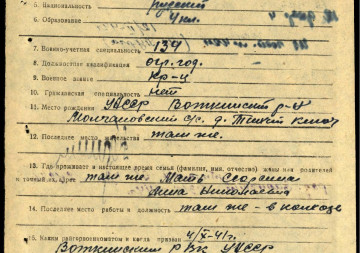 5. Национальность русский
6. Образование 4 кл.
7. Военно-учетная специальность 134
8. Должностная квалификация
9. Военное звание кр-ц
10. Гражданская специальность нет
11. Место рождения УАССР Воткинский р-н
Молчановский с/с. д.
12. Последнее место жительства там же.
13. Где проживает в настоящее время семья (фамилия, имя, отчество) жены или родителей
и точный их адрес там же. Мать
Анна
14. Последнее место работы и должность там же - в колхозе
15. Каким райгорвоенкоматом и когда призван
Воткинским РВК УАССР